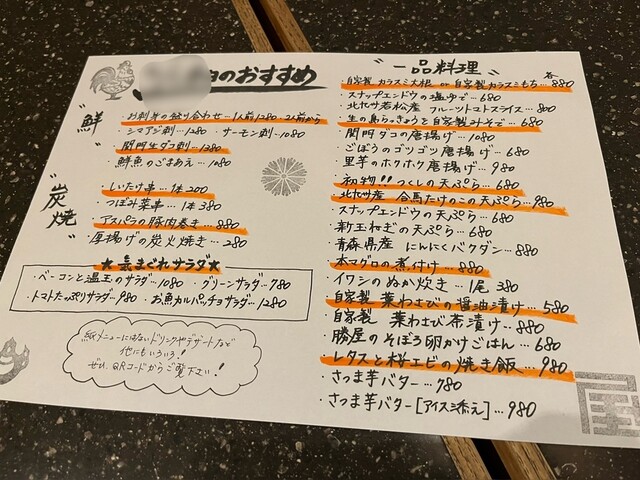 のおすすめ
"鮮"
お刺身の盛り合わせ…1人前1280…2人前から
・シマアジ刺…1280 ・サーモン刺…1080
・関門生ダコ刺…1380
・鮮魚のごまあえ…1080
"炭焼"
・しいたけ串…1本200
・つぼみ菜串…1本380
・アスパラの豚肉巻き…880
・厚揚げの炭火焼き…280
★気まぐれサラダ★
・ベーコンと温玉のサラダ…1080 ・グリーンサラダ…780
・トマトたっぷりサラダ…980 ・お魚カルパッチョサラダ…1280
紙メニューにはないドリンクやデザートなど
他にもいろいろ!
ぜひ、QRコードからご覧下さい!
"一品料理"
・自家製カラスミ大根 or 自家製カラスミもち…各880
・スナップエンドウの塩ゆで…680
・北九州若松産 フルーツトマトスライス…800
・生の島らっきょうと自家製みそで…680
・関門ダコの唐揚げ…1080
・ごぼうのゴツゴツ唐揚げ…680
・里芋のホクホク唐揚げ…980
・初物!!つくしの天ぷら…680
・北九州産 合馬たけのこの天ぷら…980
・スナップエンドウの天ぷら…680
・新玉ねぎの天ぷら…680
・青森県産 にんにくバクダン…880
・本マグロの煮付け…880
・イワシのぬか炊き…1尾380
・自家製 葉わさびの醤油漬け…580
・自家製 葉わさび茶漬け…880
・勝屋のそぼろ卵かけごはん…680
・レタスと桜エビの焼き飯…980
・さつま芋バター…780
・さつま芋バター[アイス添え]…980